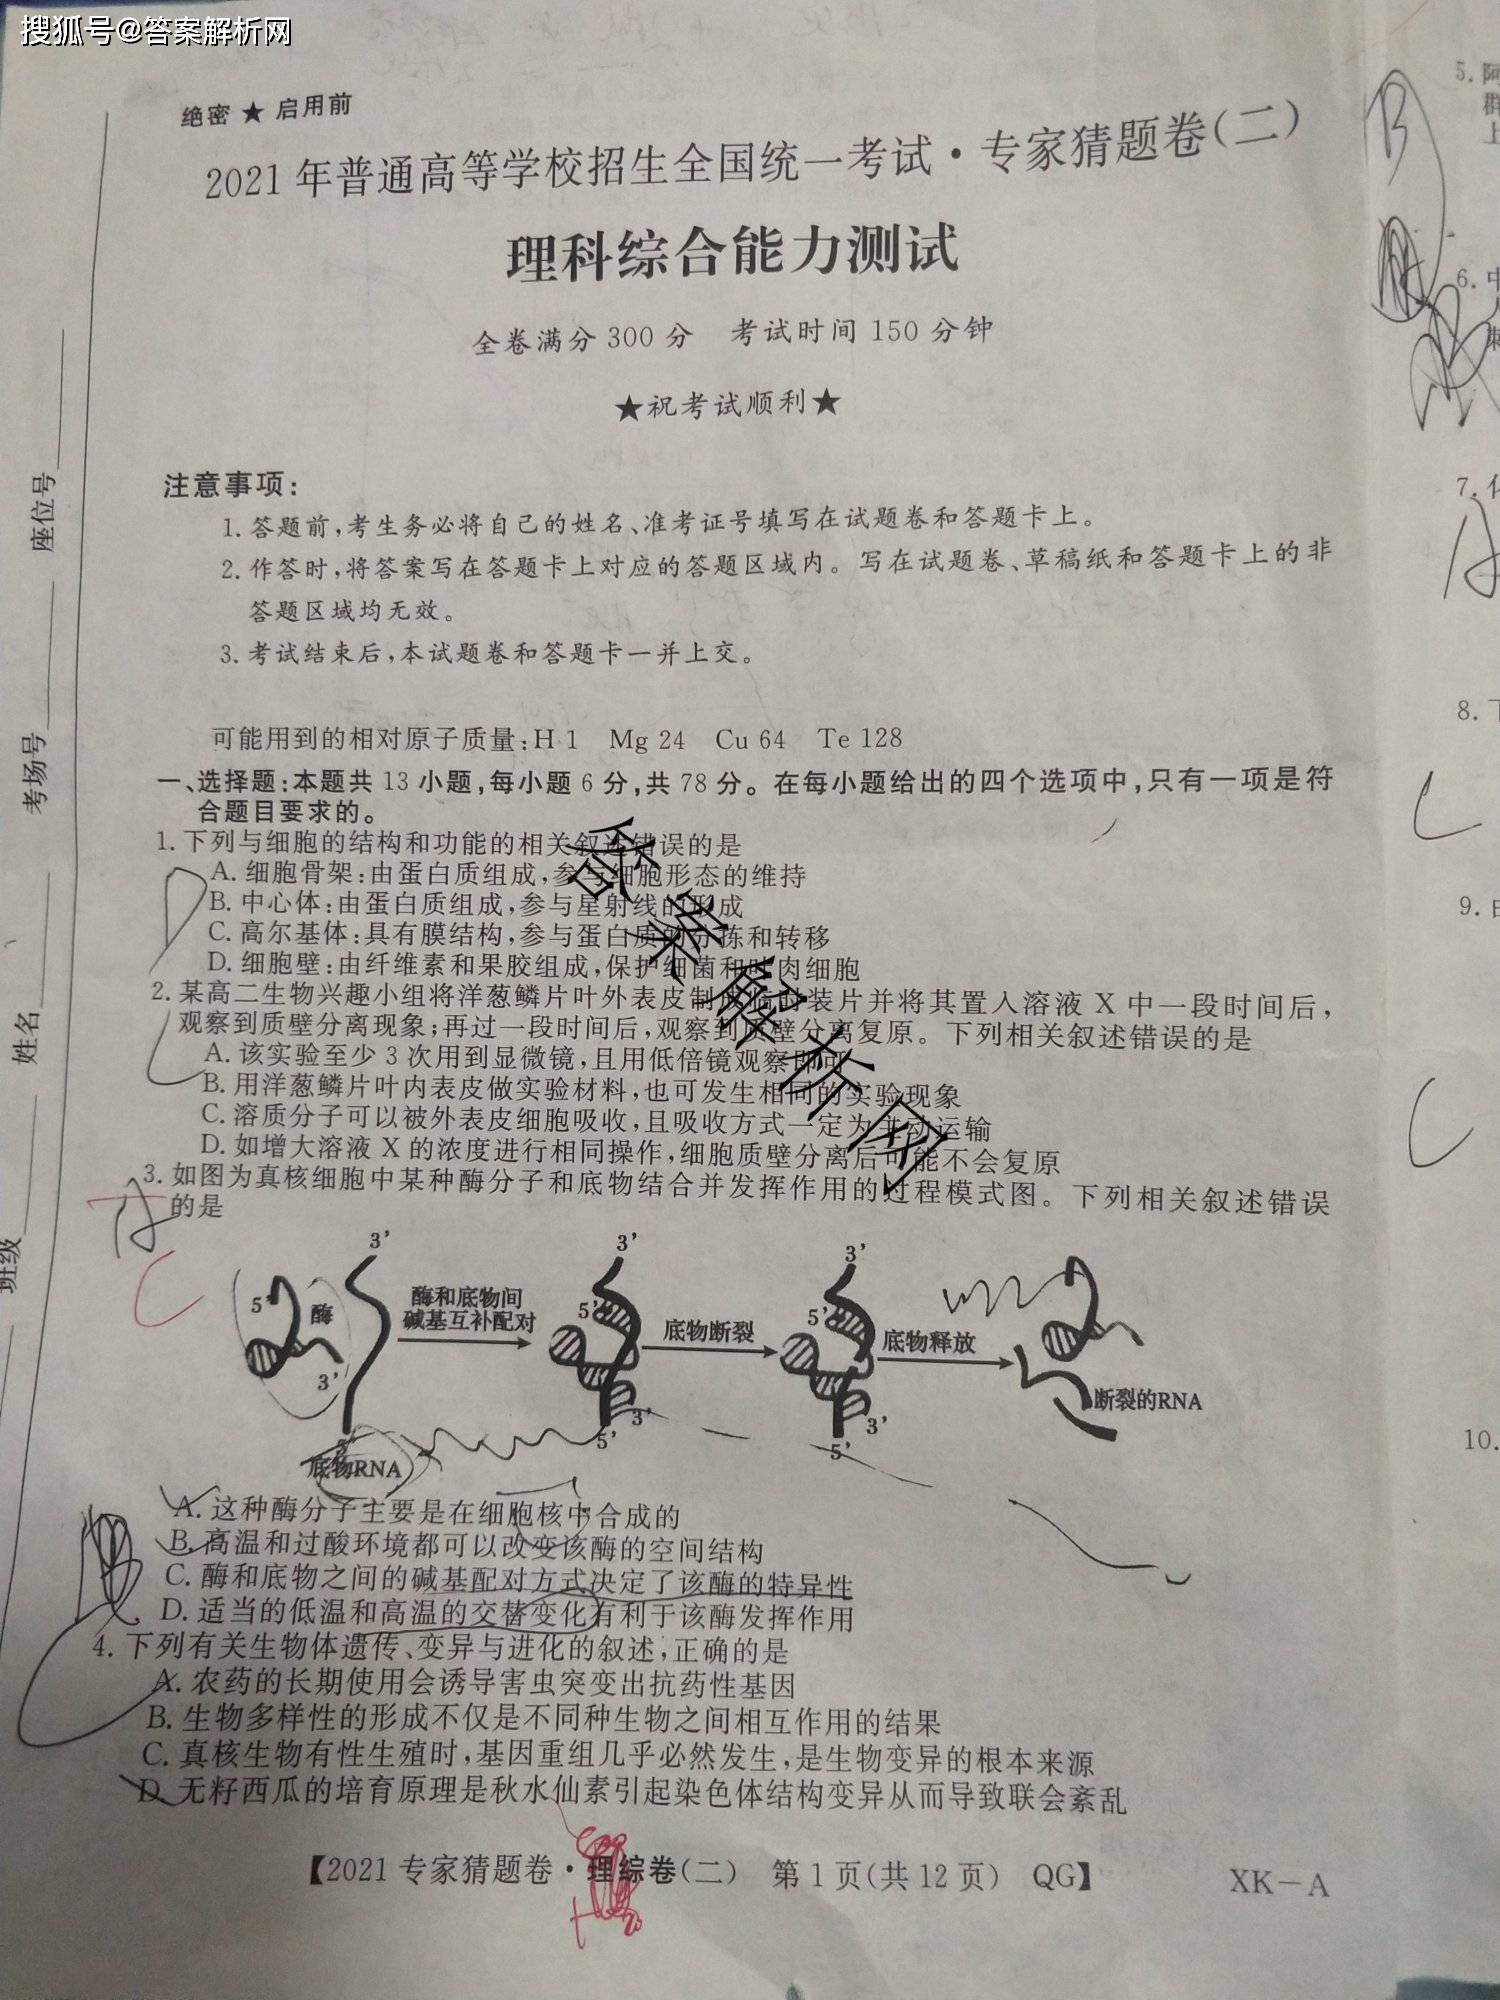 搜狐号@答案解析网
绝密★启用前
2021年普通高等学校招生全国统一考试·专家猜题卷(二)
理科综合能力测试
全卷满分300分 考试时间150分钟
★祝考试顺利★
注意事项:
1.答题前,考生务必将自己的姓名、准考证号填写在试题卷和答题卡上。
2.作答时,将答案写在答题卡上对应的答题区域内。写在试题卷、草稿纸和答题卡上的非
答题区域均无效。
3.考试结束后,本试题卷和答题卡一并上交。
可能用到的相对原子质量:H 1 Mg 24 Cu 64 Te 128
一、选择题:本题共13小题,每小题6分,共78分。在每小题给出的四个选项中,只有一项是符
合题目要求的。
1.下列与细胞的结构和功能的相关叙述错误的是
A.细胞骨架:由蛋白质组成,参与细胞形态的维持
B.中心体:由蛋白质组成,参与星射线的形成
C.高尔基体:具有膜结构,参与蛋白质的分拣和转移
D.细胞壁:由纤维素和果胶组成,保护细菌和叶肉细胞
D
2.某高二生物兴趣小组将洋葱鳞片叶外表皮制成临时装片并将其置入溶液X中一段时间后,
观察到质壁分离现象;再过一段时间后,观察到质壁分离复原。下列相关叙述错误的是
A.该实验至少3次用到显微镜,且用低倍镜观察即可
B.用洋葱鳞片叶内表皮做实验材料,也可发生相同的实验现象
C.溶质分子可以被外表皮细胞吸收,且吸收方式一定为主动运输
D.如增大溶液X的浓度进行相同操作,细胞质壁分离后可能不会复原
C
3.如图为真核细胞中某种酶分子和底物结合并发挥作用的过程模式图。下列相关叙述错误
的是
A
C
5' 酶 3' 3' 5'
底物RNA
酶和底物间
碱基互补配对
3' 5' 3' 5'
底物断裂
3' 5' 3' 5'
底物释放
断裂的RNA
A.这种酶分子主要是在细胞核中合成的
B.高温和过酸环境都可以改变该酶的空间结构
C.酶和底物之间的碱基配对方式决定了该酶的特异性
D.适当的低温和高温的交替变化有利于该酶发挥作用
4.下列有关生物体遗传、变异与进化的叙述,正确的是
A.农药的长期使用会诱导害虫突变出抗药性基因
B.生物多样性的形成不仅是不同种生物之间相互作用的结果
C.真核生物有性生殖时,基因重组几乎必然发生,是生物变异的根本来源
D.无籽西瓜的培育原理是秋水仙素引起染色体结构变异从而导致联会紊乱
【2021专家猜题卷·理综卷(二) 第1页(共12页) QG】
XK-A
答案解析网
座位号
考场号
姓名
班级
5.阿
群
上
B
6.中
7.
A
8.
C
9.
C
10.